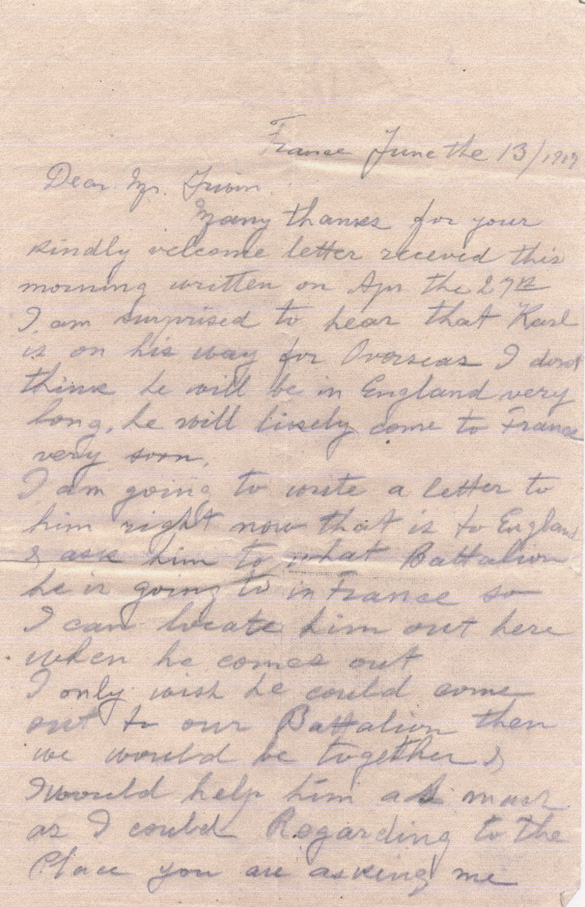 France June the 13/1917
Dear Mr. Irwin.
Many thanks for your
kindly welcome letter receved this
morning written on Apr the 27th
I am surprised to hear that Karl
is on his way for Overseas I dont
think he will be in England very
long, he will likely come to France
very soon.
I am going to write a letter to
him right now that is to England
& ask him to what Battalion
he is going to in France so
I can locate him out here
when he comes out
I only wish he could come
out to our Battalion then
we would be together &
I would help him as much
as I could Regarding to the
Place you are asking me